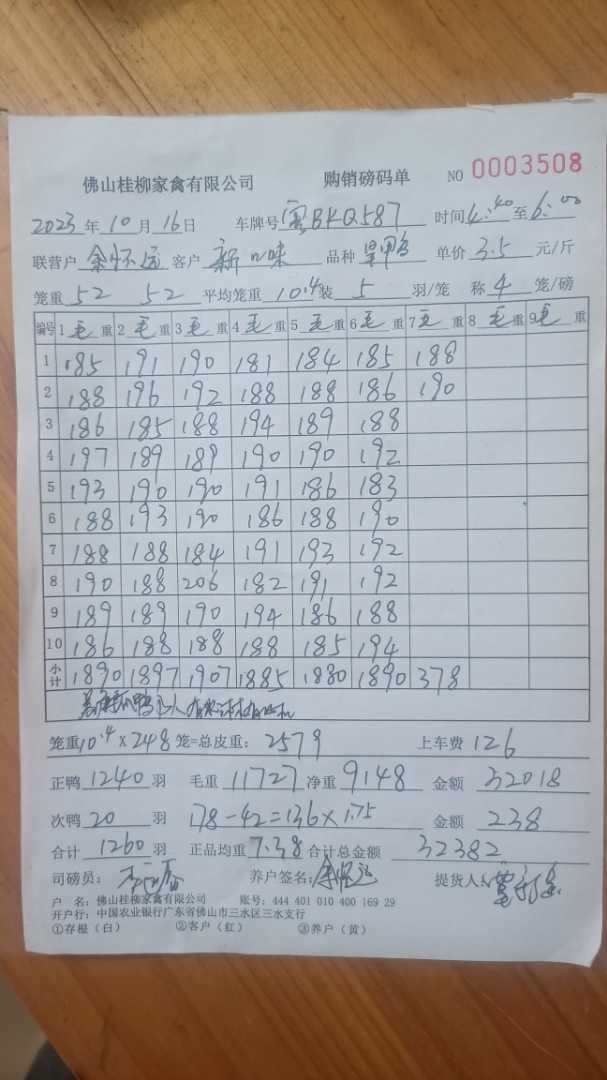 佛山桂柳家禽有限公司 购销磅码单 NO 0003508
2023年10月16日 车牌号 BKQ587 时间4:40至6:00
联营户 余怀运 客户 新口味 品种 单价 3.5 元/斤
笼重 52 52 平均笼重 10.4 装 5 羽/笼 称 4 笼/磅
编号 1 毛 重 2 毛 重 3 毛 重 4 毛 重 5 毛 重 6 毛 重 7 毛 重 8 重 9 毛 重
1 185 191 190 181 184 185 188
2 188 196 192 188 188 186 190
3 186 185 188 194 189 188
4 197 189 189 190 190 192
5 193 190 190 191 186 183
6 188 193 190 186 188 190
7 188 188 184 191 193 192
8 190 188 206 182 191 192
9 189 189 190 194 186 188
10 186 188 188 188 185 194
小计 1890 1897 1907 1885 1880 1890 378
笼重 10.4 X 248 笼=总皮重: 2579 上车费 126
正鸭 1240 羽 毛重 11727 净重 9148 金额 32018
次鸭 20 羽 178-42=136×1.75 金额 238
合计 1260 羽 正品均重 7.38 合计总金额 32382
司磅员: 养户签名: 余怀运 提货人:
户 名: 佛山桂柳家禽有限公司 账号: 444 401 010 400 169 29
开户行: 中国农业银行广东省佛山市三水区三水支行
①存根(白) ②客户(红) ③养户(黄)